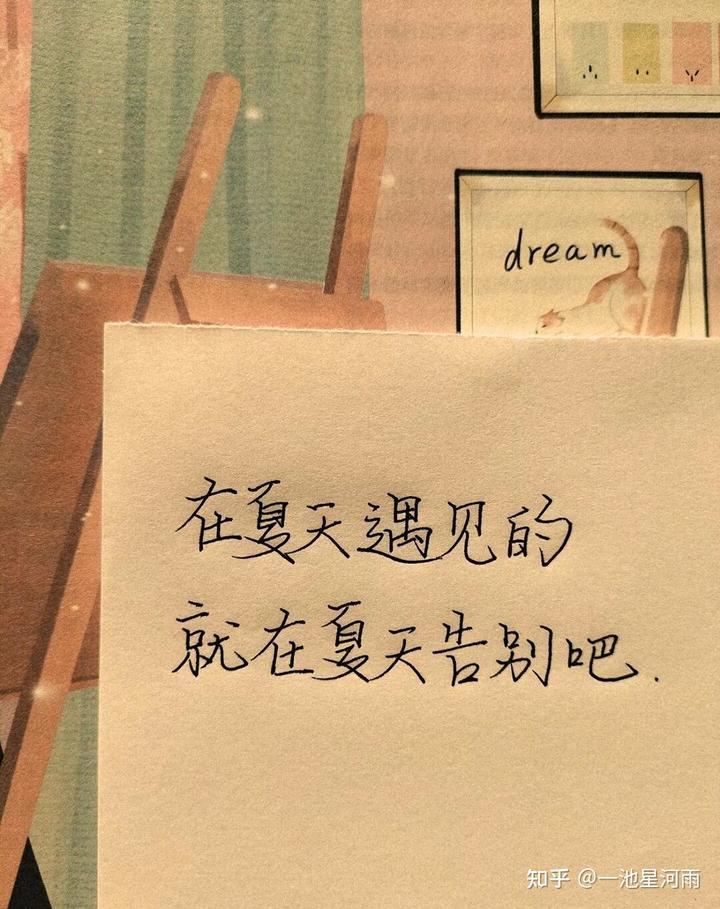 dream
在夏天遇见的
就在夏天告别吧.
知乎 @一池星河雨